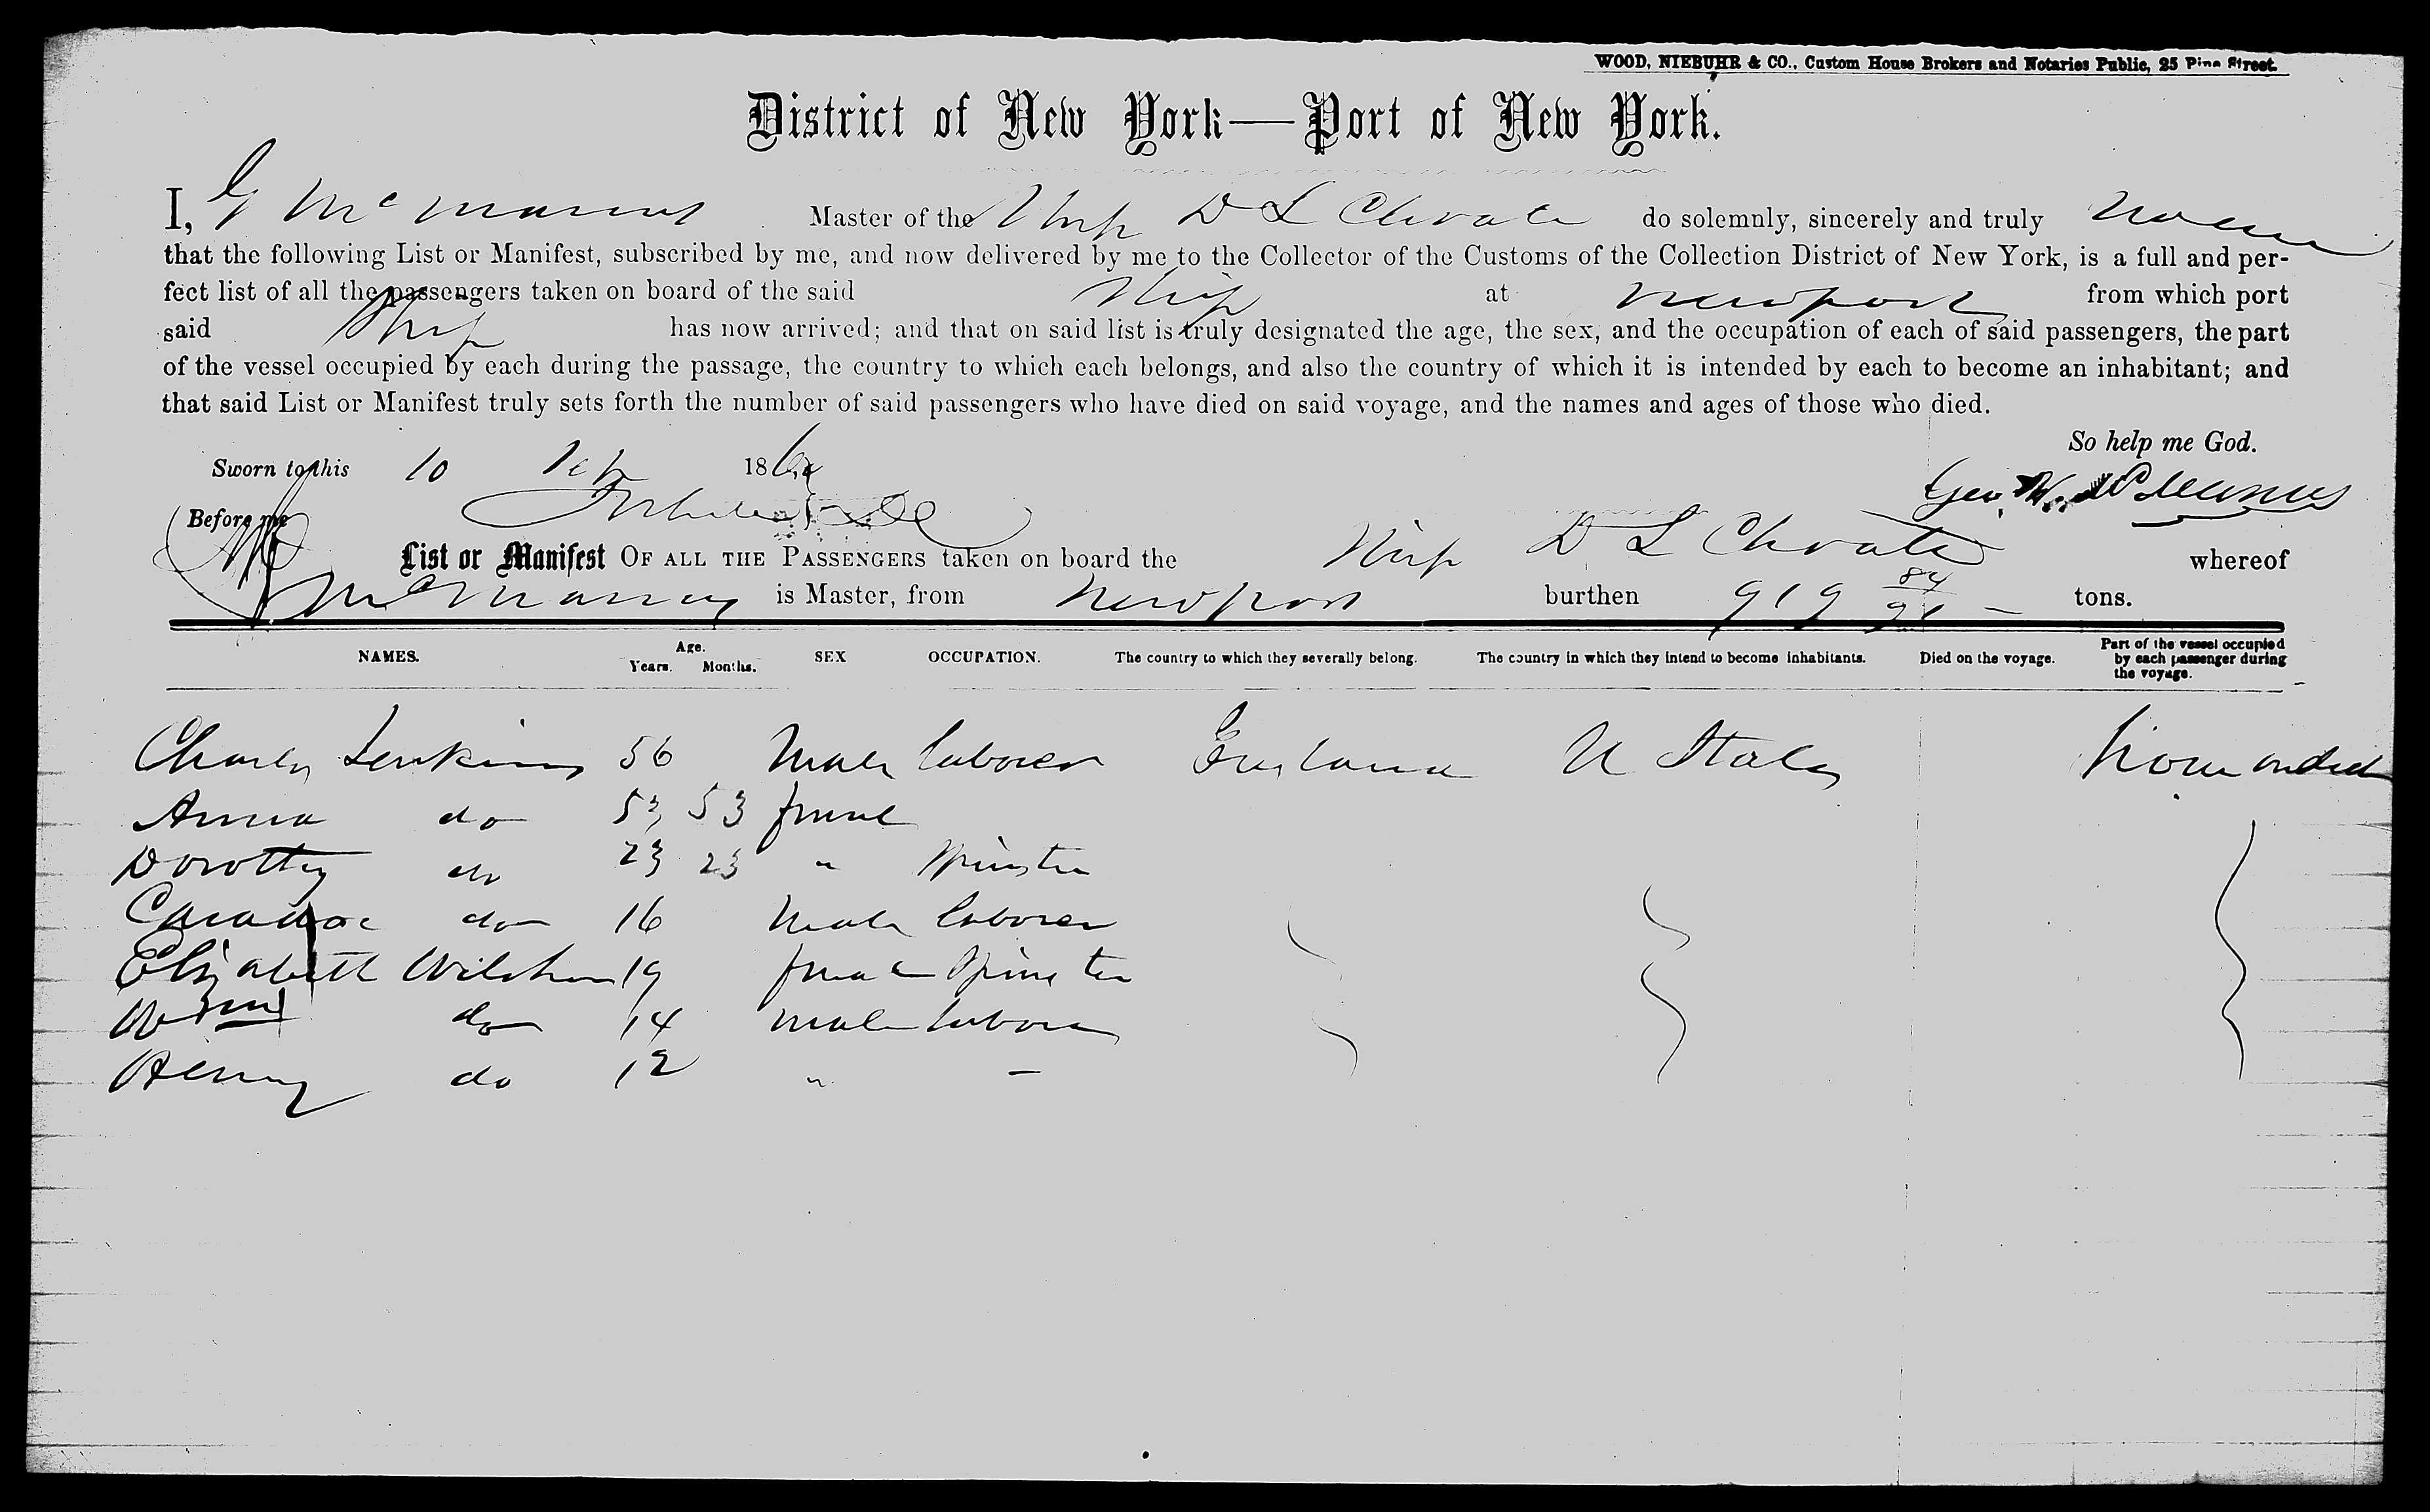 WOOD, NIEBUHR & CO., Custom House Brokers and Notaries Public, 25 Pine Street.
District of New York—Port of New York.
I, G McManus Master of the Ship D L Choate do solemnly, sincerely and truly
that the following List or Manifest, subscribed by me, and now delivered by me to the Collector of the Customs of the Collection District of New York, is a full and per-
fect list of all the passengers taken on board of the said Ship at Newport from which port
said Ship has now arrived; and that on said list is truly designated the age, the sex, and the occupation of each of said passengers, the part
of the vessel occupied by each during the passage, the country to which each belongs, and also the country of which it is intended by each to become an inhabitant; and
that said List or Manifest truly sets forth the number of said passengers who have died on said voyage, and the names and ages of those who died.
So help me God.
Sworn to this 10 186
Geo. W. McManus
Before me
List or Manifest OF ALL THE PASSENGERS taken on board the Ship D L Choate whereof
McManus is Master, from Newport burthen 919 tons.
NAMES. Age. Years. Months. SEX OCCUPATION. The country to which they severally belong. The country in which they intend to become inhabitants. Died on the voyage. Part of the vessel occupied by each passenger during the voyage.
Charles Jenkins 56 Male laborer England U States
Anna do 53 53 female
Dorothy do 23 23 " Spinster
do 16 Male laborer
Elizabeth 19 female Spinster
Wm do 14 male laborer
Henry do 12 " -